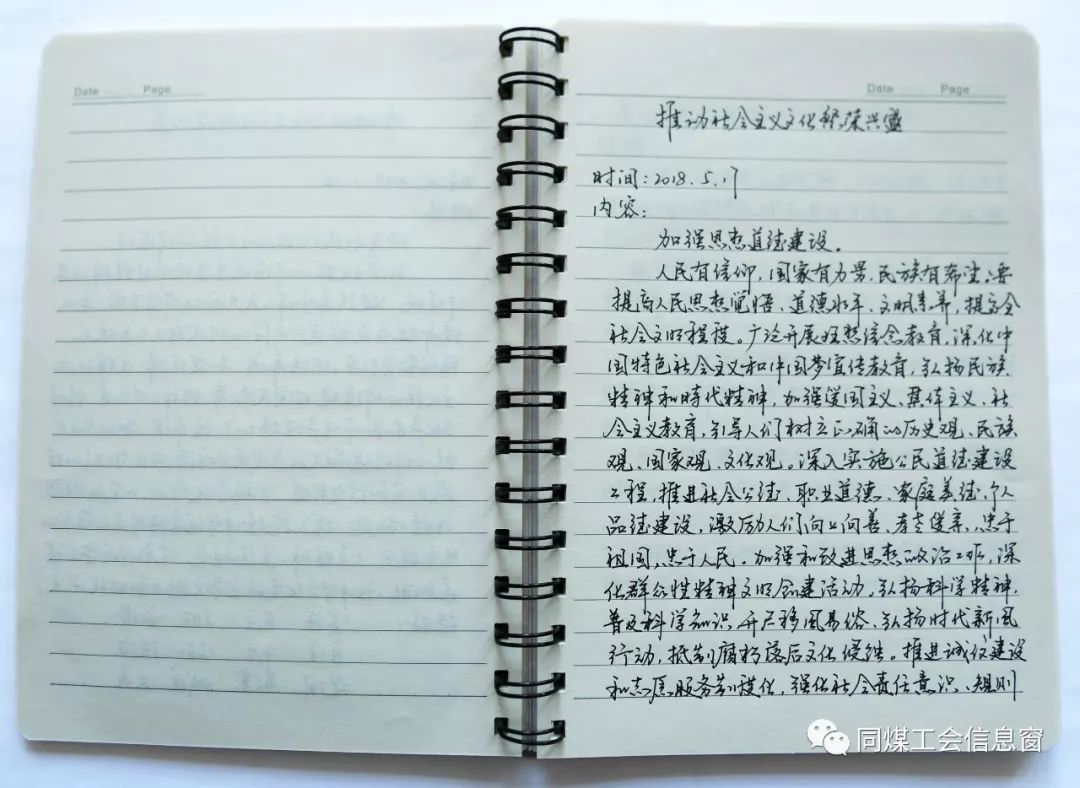 Date Page
Date Page
推动社会主义文化繁荣兴盛
时间:2018.5.17
内容:
加强思想道德建设。
人民有信仰,国家有力量,民族有希望。要
提高人民思想觉悟、道德水平、文明素养,提高全
社会文明程度。广泛开展理想信念教育,深化中
国特色社会主义和中国梦宣传教育,弘扬民族
精神和時代精神,加强爱国主义、集体主义、社
会主义教育,引导人们树立正确的历史观、民族
观、国家观、文化观。深入实施公民道德建设
工程,推进社会公德、职业道德、家庭美德、个人
品德建设,激励人们向上向善、孝老爱亲,忠于
祖国,忠于人民。加强和改进思想政治工作,深
化群众性精神文明创建活动。弘扬科学精神,
普及科学知识,开展移风易俗、弘扬时代新风
行动,抵制腐朽落后文化侵蚀。推进诚信建设
和志愿服务制度化,强化社会责任意识、规则
同煤工会信息窗